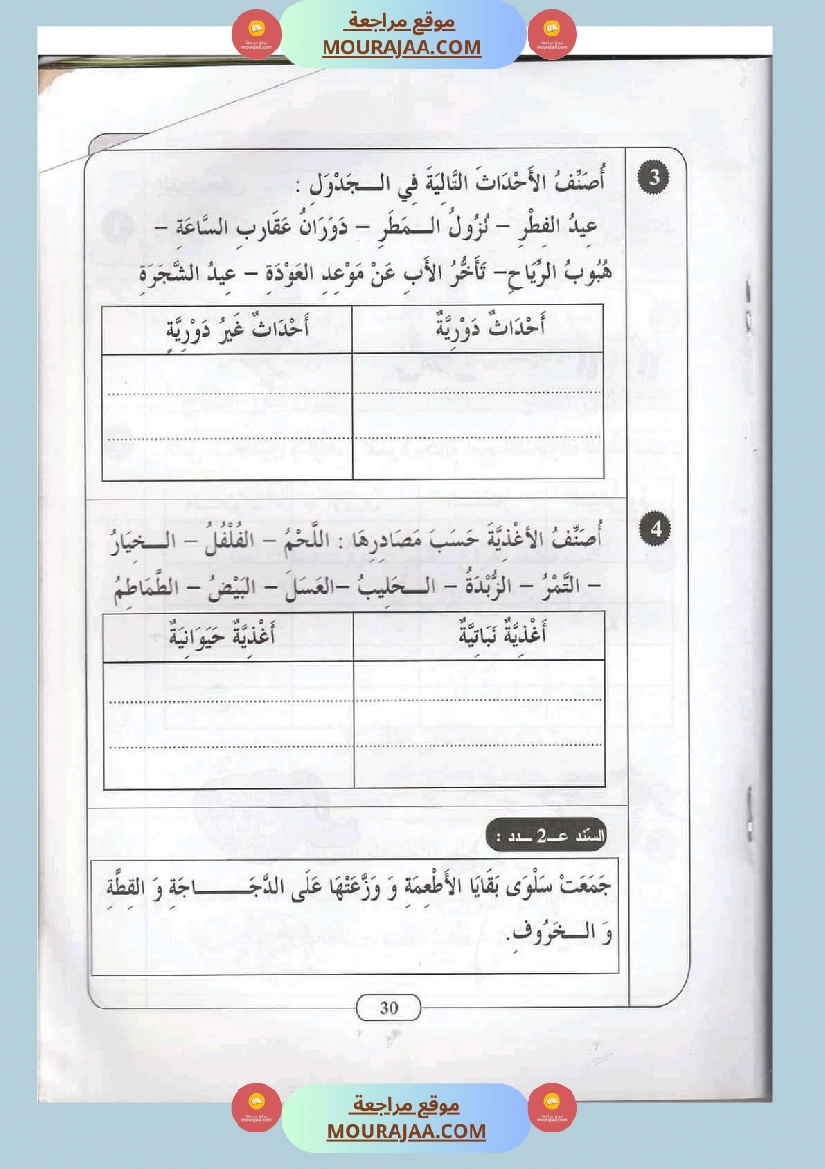 موقع مراجعة
MOURAJAA.COM
3
أُصَنِّفُ الأَحْدَاثَ التَّالِيَةَ فِي الـــجَدْوَلِ :
عِيدُ الفِطْرِ – نُزُولُ الــمَطَرِ – دَوَرَانُ عَقَارِبِ السَّاعَةِ –
هُبُوبُ الرِّيَاحِ– تَأَخُّرُ الأَبِ عَنْ مَوْعِدِ العَوْدَةِ – عِيدُ الشَّجَرَةِ
أَحْدَاثٌ دَوْرِيَّةٌ
أَحْدَاثٌ غَيْرُ دَوْرِيَّةٍ
4
أُصَنِّفُ الأغْذِيَّةَ حَسَبَ مَصَادِرِهَا : اللَّحْمُ – الفُلْفُلُ – الــخِيَارُ
– التَّمْرُ – الزُّبْدَةُ – الــحَلِيبُ –العَسَلَ – البَيْضُ – الطَّمَاطِمُ
أَغْذِيَّةٌ نَبَاتِيَّةٌ
أَغْذِيَّةٌ حَيَوَانِيَةٌ
السّند عـــ2 ــدد :
جَمَعَتْ سَلْوَى بَقَايَا الأَطْعِمَةِ وَ وَزَّعَتْهَا عَلَى الدَّجَــــــاجَةِ وَ القِطَّةِ
وَ الــخَرُوفِ.
30
موقع مراجعة
MOURAJAA.COM